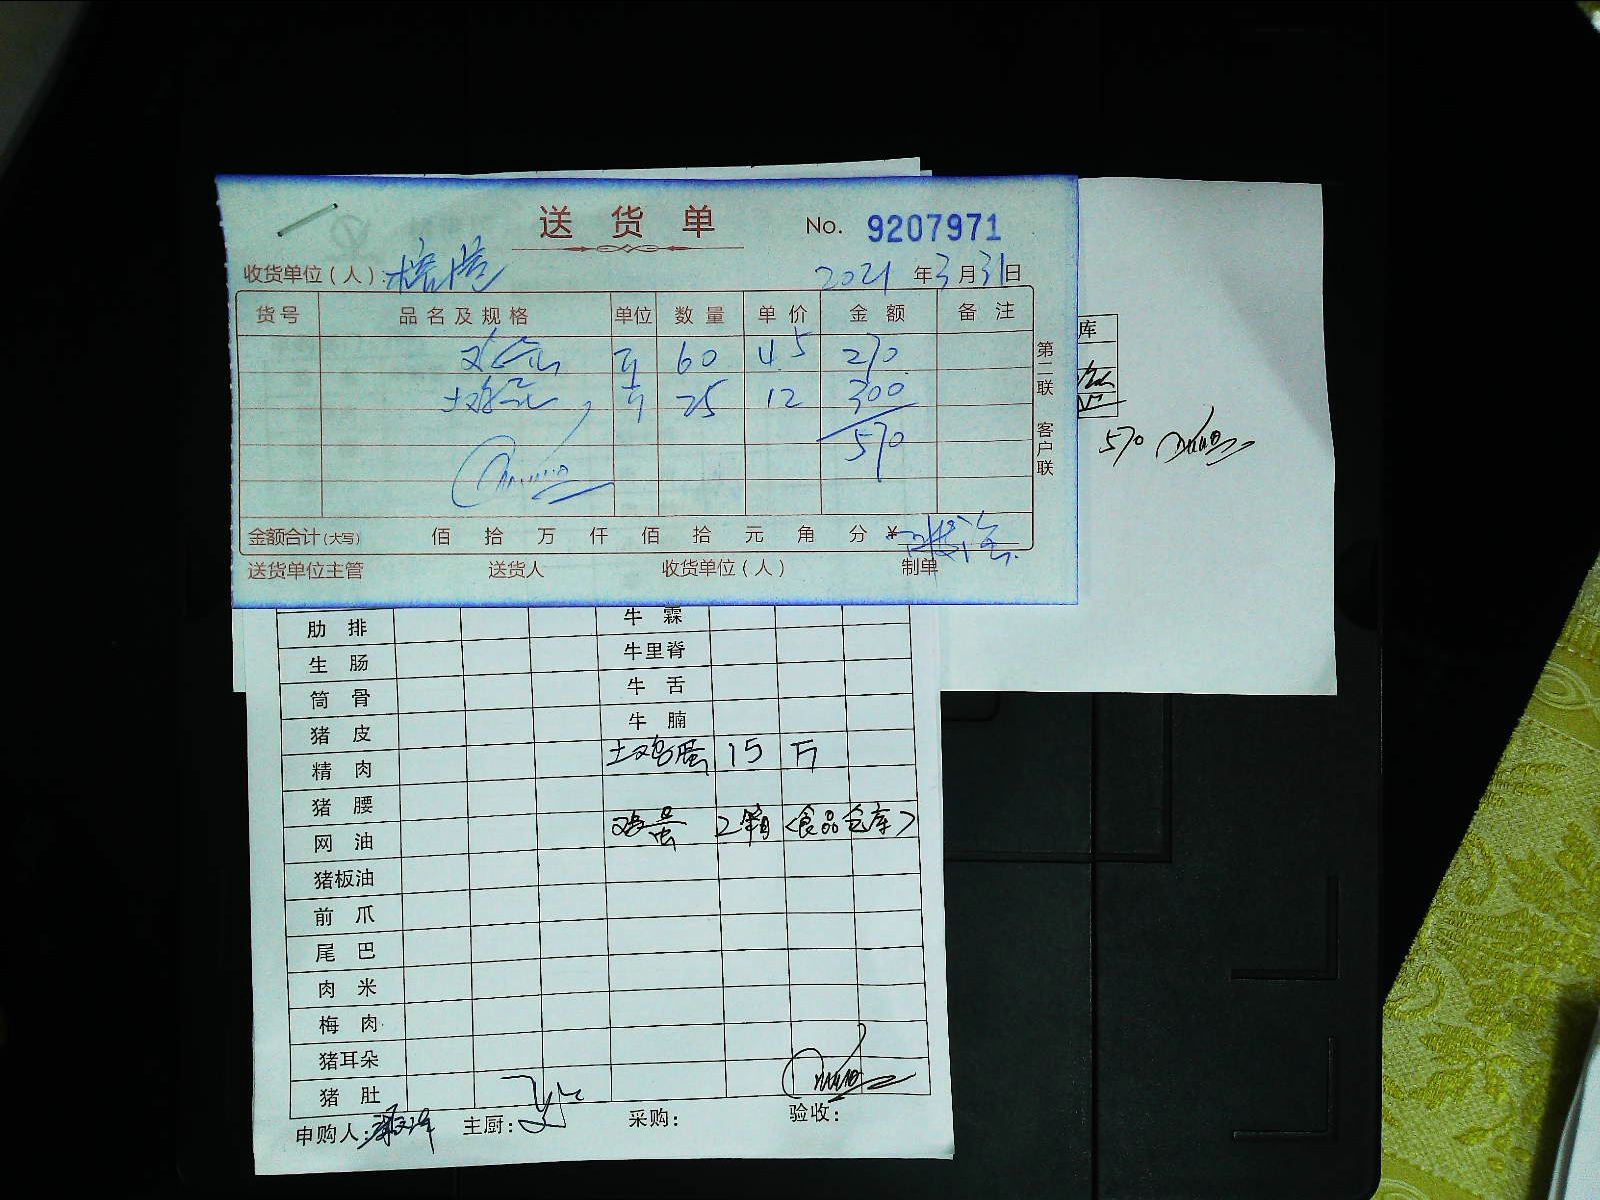 送货单 No. 9207971
收货单位(人): 2021年3月31日
货号 品名及规格 单位 数量 单价 金额 备注
鸡蛋 斤 60 4.5 270
土鸡蛋 斤 25 12 300
570
金额合计(大写) 佰 拾 万 仟 佰 拾 元 角 分 ¥
送货单位主管 送货人 收货单位(人) 制单
第二联 客户联
库
570
肋排 牛霖
生肠 牛里脊
筒骨 牛舌
猪皮 牛腩
精肉 土鸡蛋 15 斤
猪腰
网油 鸡蛋 2箱 <食品仓库>
猪板油
前爪
尾巴
肉米
梅肉
猪耳朵
猪肚
申购人: 主厨: 采购: 验收: